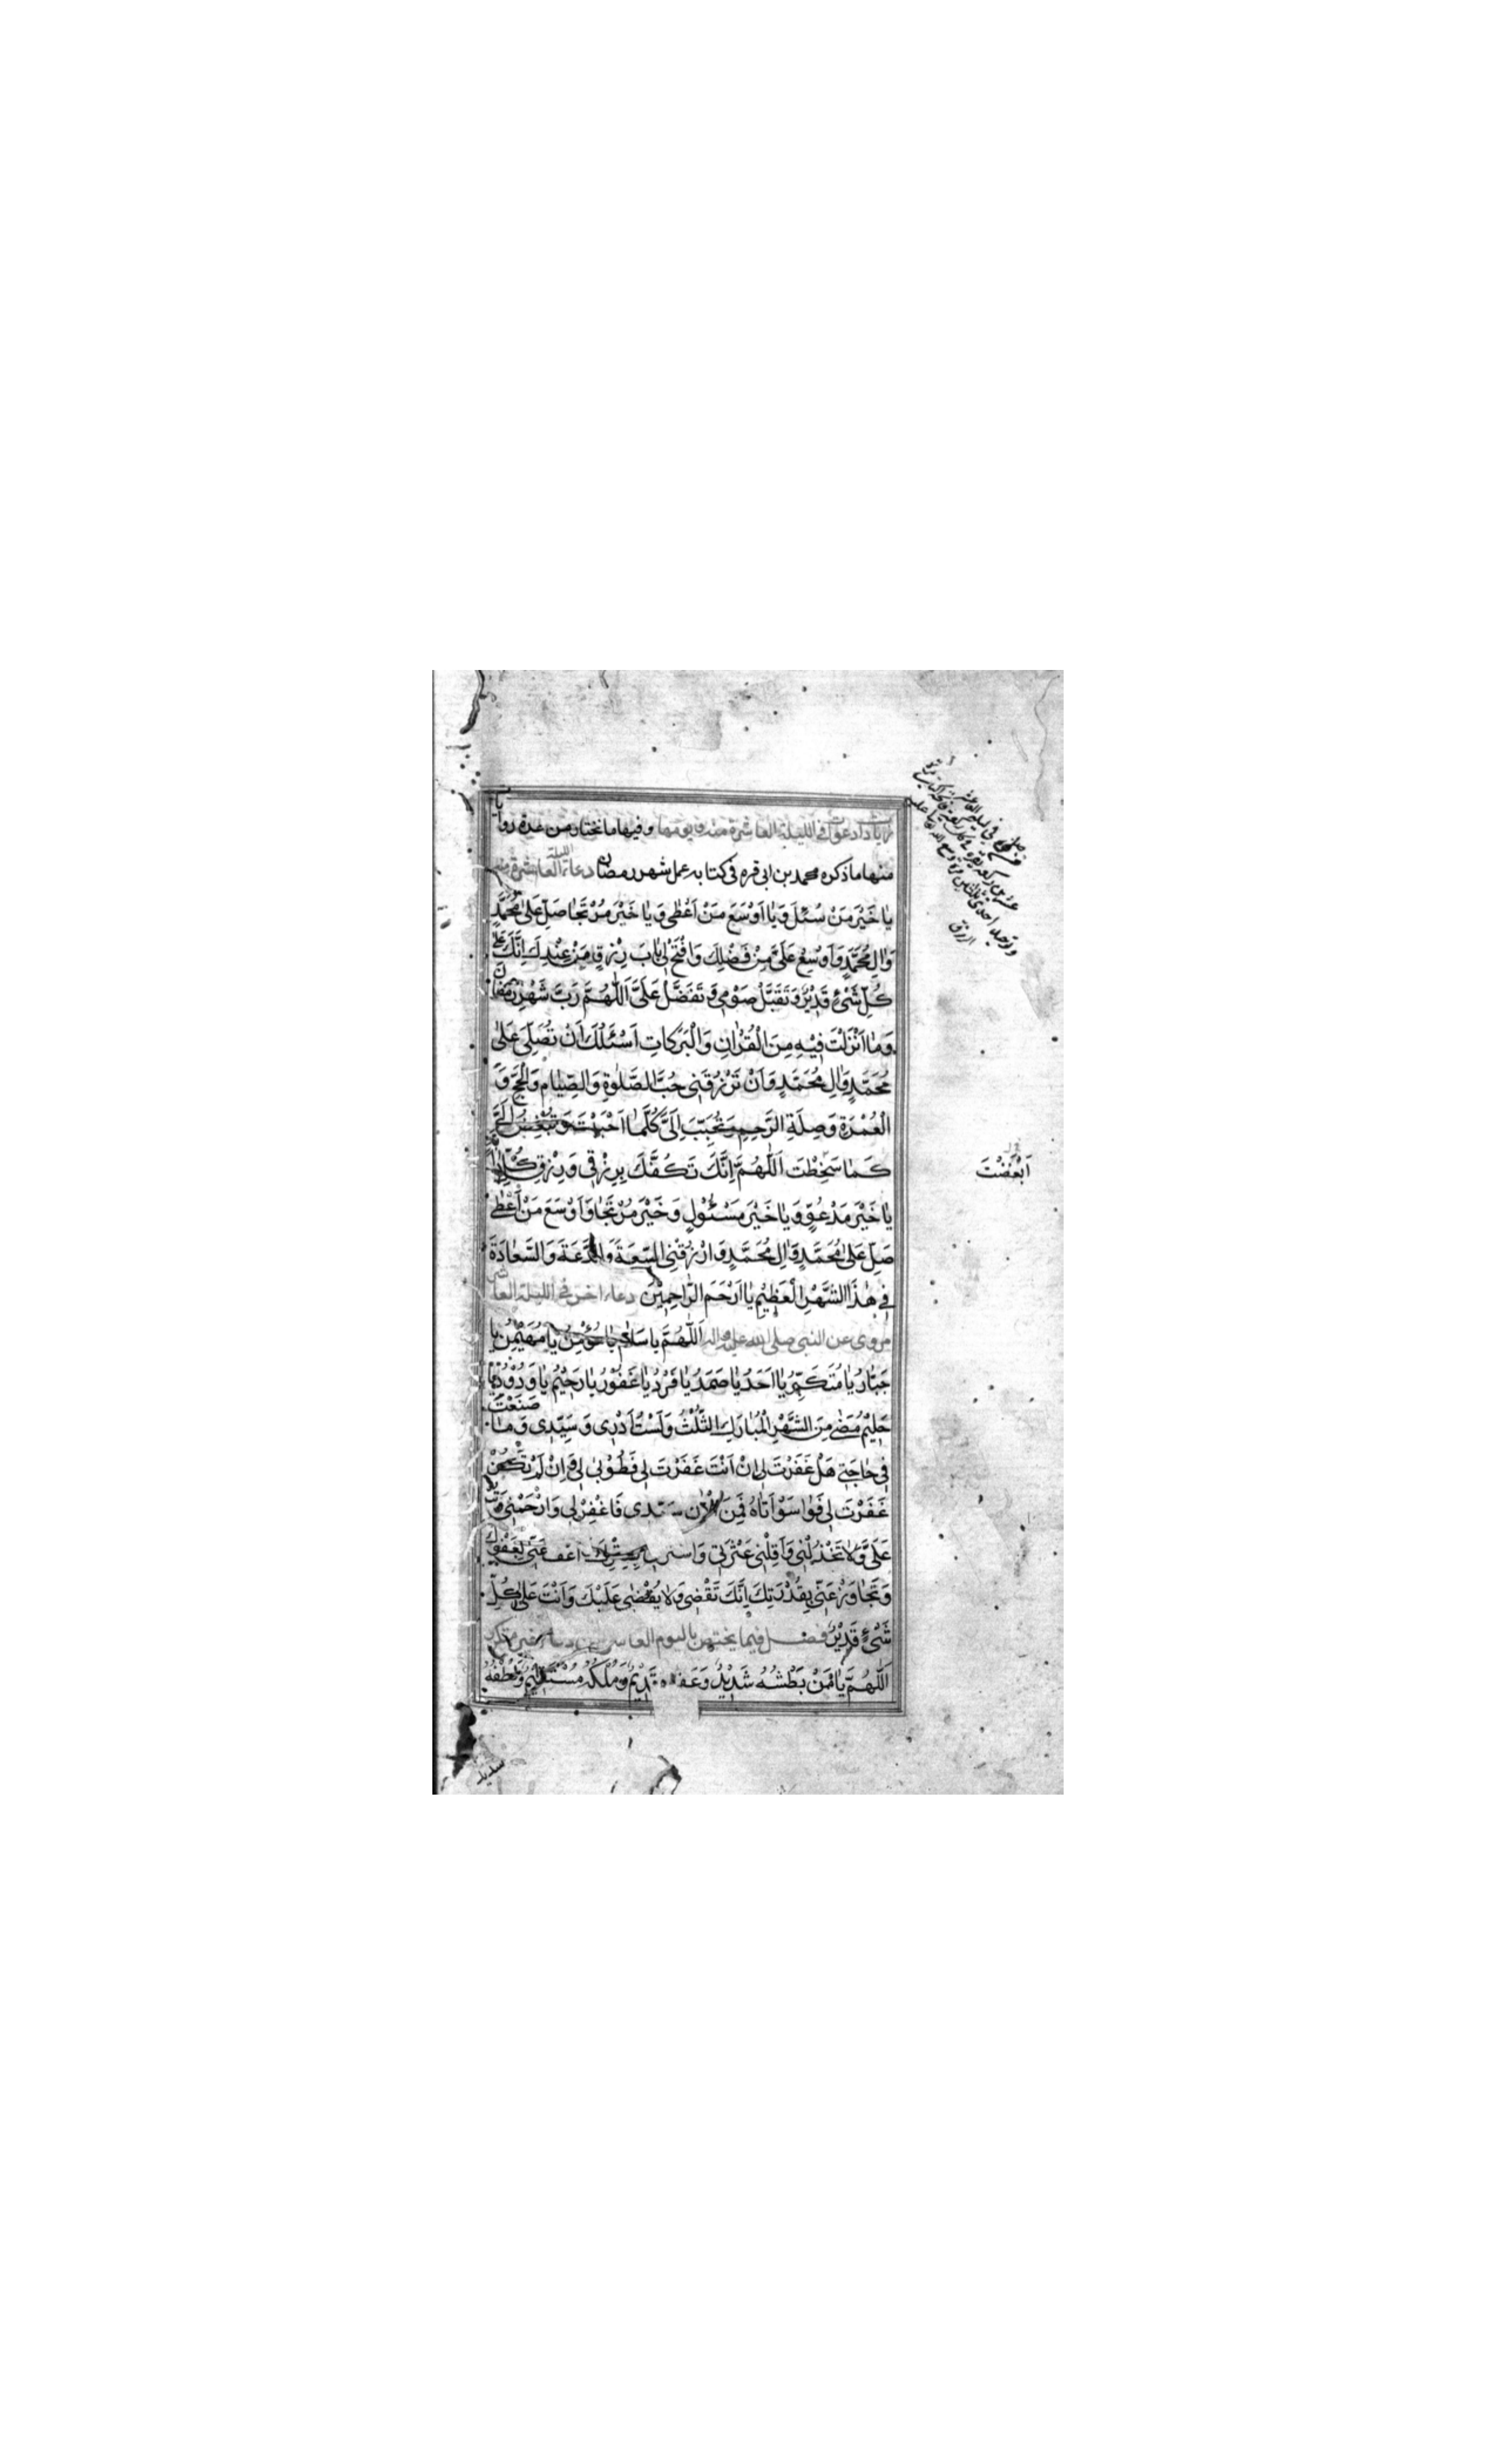 زيادات دعوات في الليلة العاشرة منه في يومها وفيها ما نختاره من عدة روايات
منها ما ذكره محمد بن ابى قره فى كتابه عمل شهر رمضان دعاء الليلة العاشرة منه
يا خَيْرَ مَنْ سُئِلَ وَيا اَوْسَعَ مَنْ اَعْطى وَيا خَيْرَ مُرْتَجا صَلِّ عَلى مُحَمَّدٍ
وَالِ مُحَمَّدٍ وَاَوْسِعْ عَلَىَّ مِنْ فَضْلِكَ وَافْتَحْ لى بابَ رِزْقٍ مِنْ عِنْدِكَ اِنَّكَ عَلى
كُلِّ شَىْءٍ قَديرٌ وَتَقَبَّلْ صَوْمى وَتَفَضَّلْ عَلَىَّ اَللّهُمَّ رَبَّ شَهْرِ رَمَضانَ
وَما اَنْزَلْتَ فيهِ مِنَ الْقُرْانِ وَالْبَرَكاتِ اَسْئَلُكَ اَنْ تُصَلِّىَ عَلى
مُحَمَّدٍ وَالِ مُحَمَّدٍ وَاَنْ تَرْزُقَنى حُبَّ الصَّلوةِ وَالصِّيامِ وَالْحَجِّ وَ
الْعُمْرَةِ وَصِلَةِ الرَّحِمِ وَتُحَبِّبَ اِلَىَّ كُلَّما اَحْبَبْتَ وَتُبَغِّضَ اِلَىَّ
كَما سَخِطْتَ اَللّهُمَّ اِنَّكَ تَكَفَّلْتَ بِرِزْقى وَرِزْقِ كُلِّ دابَّةٍ
اَبْغَضْتَ
يا خَيْرَ مَدْعُوٍّ وَيا خَيْرَ مَسْئُولٍ وَخَيْرَ مُرْتَجا وَاَوْسَعَ مَنْ اَعْطى
صَلِّ عَلى مُحَمَّدٍ وَالِ مُحَمَّدٍ وَارْزُقْنِى السَّعَةَ وَالدَّعَةَ وَالسَّعادَةَ
فى هذَا الشَّهْرِ الْعَظيمِ يا اَرْحَمَ الرّاحِمينَ دعاء اخر في الليلة العاشرة
مروى عن النبى صلى الله عليه واله اَللّهُمَّ يا سَلامُ يا مُؤْمِنُ يا مُهَيْمِنُ يا
جَبّارُ يا مُتَكَبِّرُ يا اَحَدُ يا صَمَدُ يا فَرْدُ يا غَفُورُ يا رَحيمُ يا وَدُودُ يا
حَليمُ مَضى مِنَ الشَّهْرِ الْمُبارَكِ الثُّلْثُ وَلَسْتُ اَدْرى وَسَيِّدى وَما صَنَعْتَ
فى حاجَتى هَلْ غَفَرْتَ لى اِنْ اَنْتَ غَفَرْتَ لى فَطُوبى لى وَاِنْ لَمْ تَكُنْ
غَفَرْتَ لى فَوا سَوْاَتاهُ فَمِنَ الْانَ سَيِّدى فَاغْفِرْ لى وَارْحَمْنى وَتُبْ
عَلَىَّ وَلا تَخْذُلْنى وَاَقِلْنى عَثْرَتى وَاسْتُرْنى بِسِتْرِكَ وَاعْفُ عَنّى بِعَفْوِكَ
وَتَجاوَزْ عَنّى بِقُدْرَتِكَ اِنَّكَ تَقْضى وَلا يُقْضى عَلَيْكَ وَاَنْتَ عَلى كُلِّ
شَىْءٍ قَديرٌ فصل فيما يختص باليوم العاشر من دعاء غير متكرر
اَللّهُمَّ يا مَنْ بَطْشُهُ شَديدٌ وَعَفْوُهُ قَديمٌ وَمُلْكُهُ مُسْتَقيمٌ وَلُطْفُهُ
شديد